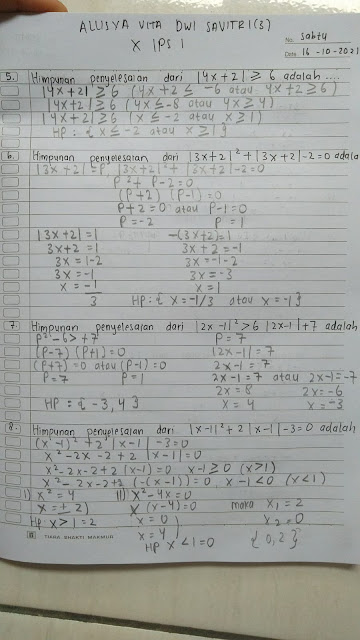 ALUSYA VITA DWI SAVITRI (3)
X IPS 1
No. Sabtu
Date. 16-10-2021
5. Himpunan penyelesaian dari |4x+2| ≥ 6 adalah ....
|4x+2| ≥ 6 (4x+2 ≤ -6 atau 4x+2 ≥ 6)
|4x+2| ≥ 6 (4x ≤ -8 atau 4x ≥ 4)
|4x+2| ≥ 6 (x ≤ -2 atau x ≥ 1)
HP : { x ≤ -2 atau x ≥ 1 }
6. Himpunan penyelesaian dari |3x+2|² + |3x+2| -2=0 adala
|3x+2| = P |3x+2|² + |3x+2| -2=0
P² + P-2=0
(P+2) (P-1) =0
P+2 =0 atau P-1=0
P=-2 P=1
|3x+2| =1 -(3x+2)=1
3x+2 =1 3x+2 =-1
3x = 1-2 3x =-1-2
3x =-1 3x =-3
x = -1/3 x = 1
HP : { x = -1/3 atau x = -1 }
7. Himpunan penyelesaian dari |2x-1|² > 6 |2x-1| +7 adalah
P² -6> +7 P = 7
(P-7) (P+1) =0 |2x-1| = 7
(P+7) =0 atau (P-1) =0 2x-1 = 7
P=7 P=1 2x-1 = 7 atau 2x-1=-7
2x = 8 2x=-6
HP : { -3, 4 } x = 4 x = -3
8. Himpunan penyelesaian dari |x-1|² + 2 |x-1| -3=0 adalah
(x-1)² + 2 |x-1| -3=0
x²-2x -2 +2 |x-1| =0
x²-2x-2+2 (x-1) =0 x-1 ≥ 0 (x>1)
x²-2x-2+2 (-(x-1)) =0, x-1 <0 (x<1)
I) x² = 4 II) x²-4x=0
x = ± 2) x (x-4) =0 maka x₁ = 2
Hp x > 1 = 2 x = 0 x₂ =0
x = 4
HP x <1=0 { 0,2 }
8 TIARA SHAKTI MAKMUR